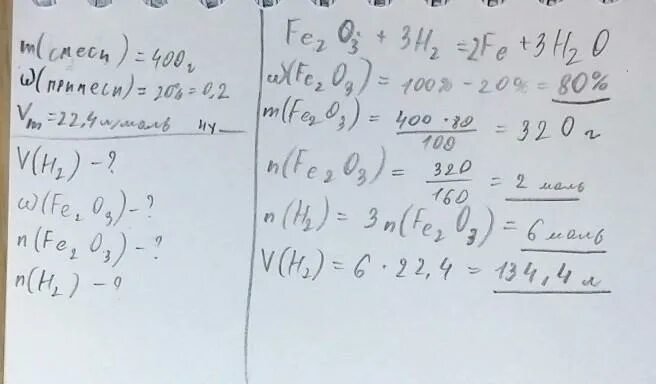 m(смеси) = 400г
ω(примеси) = 20% = 0,2
Vm = 22,4 л/моль н.у.
V(H₂) - ?
ω(Fe₂O₃) - ?
n(Fe₂O₃) - ?
n(H₂) - ?
Fe₂O₃ + 3H₂ = 2Fe + 3H₂O
ω(Fe₂O₃) = 100% - 20% = 80%
m(Fe₂O₃) = 400 · 80 / 100 = 320 г
n(Fe₂O₃) = 320 / 160 = 2 моль
n(H₂) = 3n(Fe₂O₃) = 6 моль
V(H₂) = 6 · 22,4 = 134,4 л